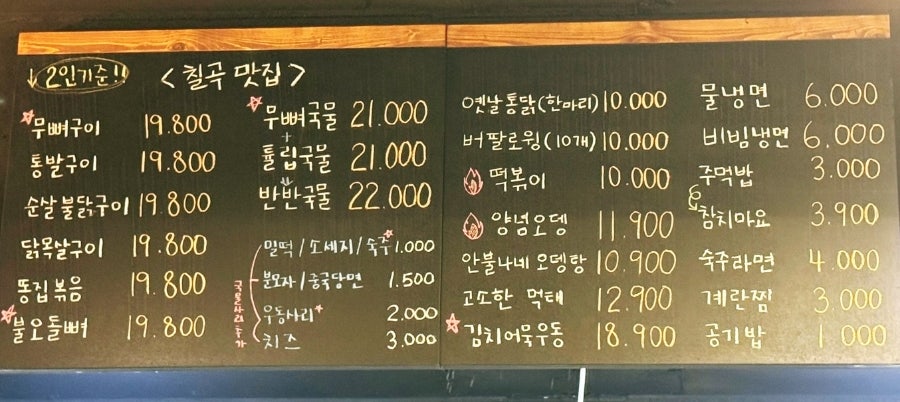 ↓ 2인기준!! <칠곡 맛집>
무뼈구이 19.800
통발구이 19.800
순살불닭구이 19.800
닭목살구이 19.800
똥집볶음 19.800
불오돌뼈 19.800
무뼈국물 21.000
+
튤립국물 21.000
반반국물 22.000
밀떡/소세지/숙주 1.000
분모자/중국당면 1.500
우동사리 2.000
치즈 3.000
국물사리추가
옛날통닭(한마리) 10.000
버팔로윙(10개) 10.000
떡볶이 10.000
양념오뎅 11.900
안불나네 오뎅탕 10.900
고소한 먹태 12.900
김치어묵우동 18.900
물냉면 6.000
비빔냉면 6.000
주먹밥 3.000
참치마요 3.900
숙주라면 4.000
계란찜 3.000
공기밥 1.000